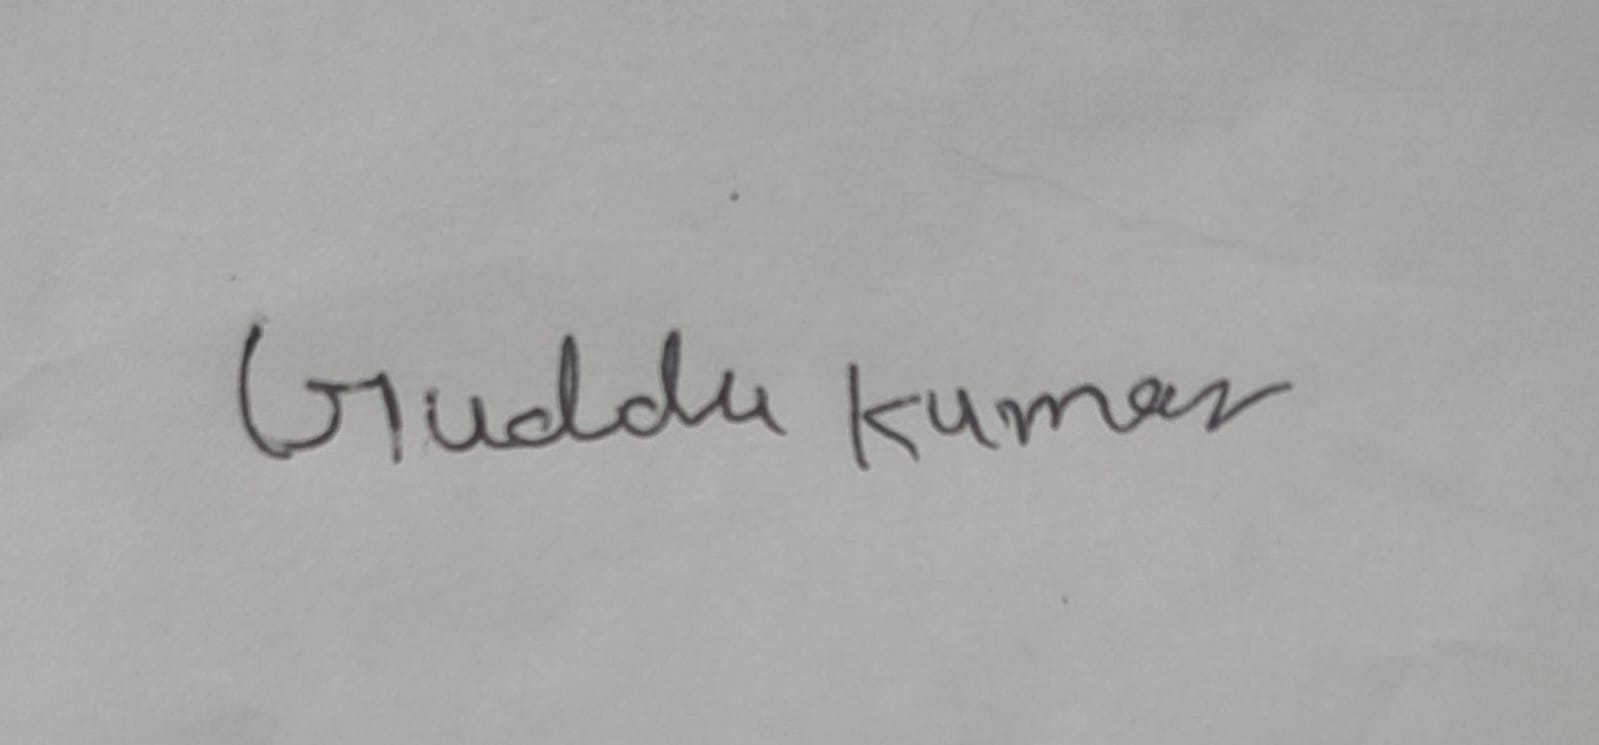 Guddu Kumar